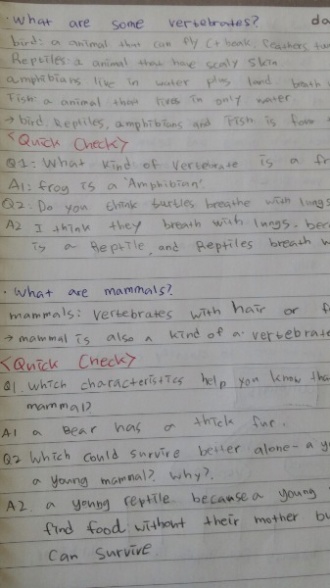 · What are some vertebrates? da
bird: a animal that can fly (+ beak, feathers
Reptiles: a animal that have scaly skin.
amphibians live in water plus land breath
Fish: a animal that lives in only water.
→ bird, Reptiles, amphibians and Fish is
<Quick Check>
Q1: What kind of vertebrate is a fr
A1: frog is a 'Amphibian'
Q2: Do you think turtles breathe with lungs
A2 I think they breath with lungs, bec
is a Reptile, and Reptiles breath w
· What are mammals?
mammals: vertebrates with hair or f
→ mammal is also a kind of a vertebrate
<Quick Check>
Q1 Which characteristics help you know tha
mammal?
A1 a Bear has a thick fur.
Q2 Which could survive better alone- a y
a young mammal? why?
A2 a young reptile because a young
find food without their mother bu
can survive.